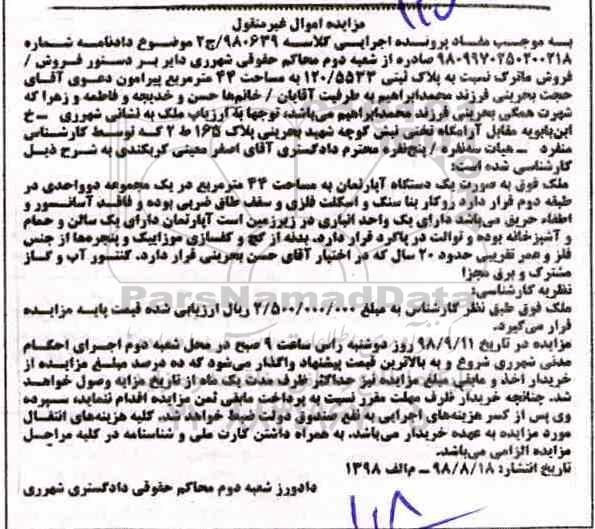 مزایده اموال غیرمنقول
به موجب مفاد پرونده اجرایی کلاسه ۹۸۰۶۳۹/ج۲ موضوع دادنامه شماره
۹۸۰۹۹۷۰۲۵۰۲۰۰۲۱۸ صادره از شعبه دوم محاکم حقوقی شهرری دایر بر دستور فروش /
فروش ماترک نسبت به پلاک ثبتی ۱۲۰/۵۵۲۳ به مساحت ۴۴ مترمربع پیرامون دعوی آقای
حجت بحرینی فرزند محمدابراهیم به طرفیت آقایان / خانم‌ها حسن و خدیجه و فاطمه و زهرا که
شهرت همگی بحرینی فرزند محمدابراهیم می‌باشد، توجها به ارزیاب ملک به نشانی شهرری ـ خ
ابن‌بابویه مقابل آرامگاه تختی نبش کوچه شهید بحرینی پلاک ۱۶۵ ط ۲ که توسط کارشناس
منفرد ـ هیات سه‌نفره / پنج‌نفره محترم دادگستری آقای اصغر معینی کربکندی به شرح ذیل
کارشناسی شده است:
ملک فوق به صورت یک دستگاه آپارتمان به مساحت ۴۴ مترمربع در یک مجموعه دوواحدی در
طبقه دوم قرار دارد روکار بنا سنگ و اسکلت فلزی و سقف طاق ضربی بوده و فاقد آسانسور و
اطفاء حریق می‌باشد دارای یک واحد انباری در زیرزمین است آپارتمان دارای یک سالن و حمام
و آشپزخانه بوده و توالت در پاگرد قرار دارد. بدنه از گچ و کفسازی موزاییک و پنجره‌ها از جنس
فلز و عمر تقریبی حدود ۲۰ سال که در اختیار آقای حسن بحرینی قرار دارد. کنتور آب و گاز
مشترک و برق مجزا
نظریه کارشناسی:
ملک فوق طبق نظر کارشناس به مبلغ ۲/۵۰۰/۰۰۰/۰۰۰ ریال ارزیابی شده قیمت پایه مزایده
قرار می‌گیرد.
مزایده در تاریخ ۹۸/۹/۱۱ روز دوشنبه راس ساعت ۹ صبح در محل شعبه دوم اجرای احکام
مدنی شهرری شروع و به بالاترین قیمت پیشنهاد واگذار می‌شود که ده درصد مبلغ مزایده از
خریدار اخذ و مابقی مبلغ مزایده نیز حداکثر ظرف مدت یک ماه از تاریخ مزایه وصول خواهد
شد. چنانچه خریدار ظرف مهلت مقرر نسبت به پرداخت مابقی ثمن مزایده اقدام ننماید سپرده
وی پس از کسر هزینه‌های اجرایی به نفع صندوق دولت ضبط خواهد شد. کلیه هزینه‌های انتقال
مورد مزایده به عهده خریدار می‌باشد. به همراه داشتن کارت ملی و شناسنامه در کلیه مراحل
مزایده الزامی می‌باشد.
تاریخ انتشار: ۹۸/۸/۱۸ ـ م‌الف ۱۳۹۸
دادورز شعبه دوم محاکم حقوقی دادگستری شهرری
ParsNamadData